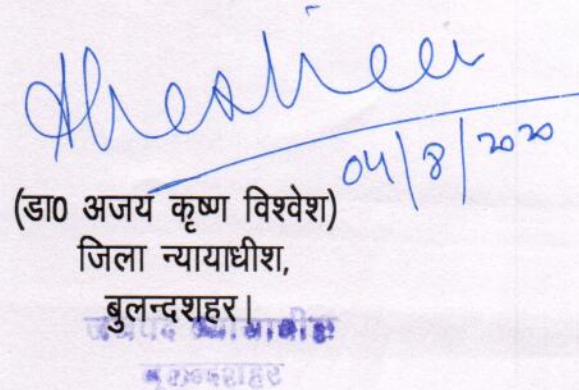 04/8/2020
(डा0 अजय कृष्ण विश्वेश)
जिला न्यायाधीश,
बुलन्दशहर।